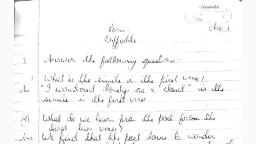 Class 1
Poem
Daffodils
1 Answer the following question:
1 What is the simile in the first verse?
"I wondered lonely as a cloud" is the
simile in the first verse
What do we learn from the poet from the
first two verse?
Ans We find that the poet loves to wonder